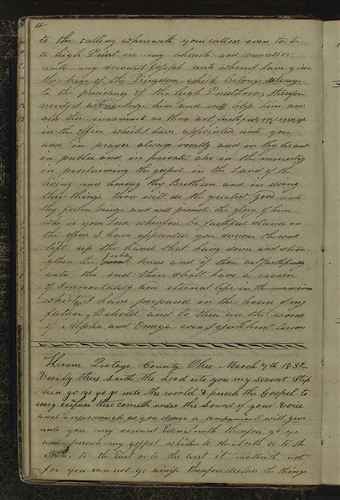 to the calling wherewith your called even to be
a high Priest in my church and councellor
unto my servant Joseph unto whom I have given
the keys of the Kingdom which belong always
to the presidency of the high Priesthood therefore
verily I acknowledge him and will bless him and
also thee inasmuch as thou art faithful in
in the office which I have appointed unto you
and in prayer always vocally and in thy heart
in public and in private also in the ministry
in proclaiming the gospel in the land of the
living and among thy Brethren and in doing
these things thou wilt do the greatest good unto
thy fellow beings and will promote the glory of him
who is your Lord wherefore be faithful stand in
the office I have appointed you succor the weak
lift up the hands that hang down and stren
gthen the feeble knees and if thou art faithful
unto the end thou shalt have a crown
of Immortality and eternal life in the mansions
which I have prepared in the house of my
father Behold and lo these are the words
of Alpha and Omega even Jesus Christ Amen
Hiram Portage County Ohio March 7th 1832
Verily thus saith the Lord unto you my servant Step
hen go ye go ye into the world & preach the Gospel to
every creature that cometh under the sound of your voice
and inasmuch as you desire a companion I will give
unto you my servant Eden Smith therefore go ye
and preach my gospel whither to the North or to the
South to the East or to the west it mattereth not
for you can not go amiss therefore declare the things